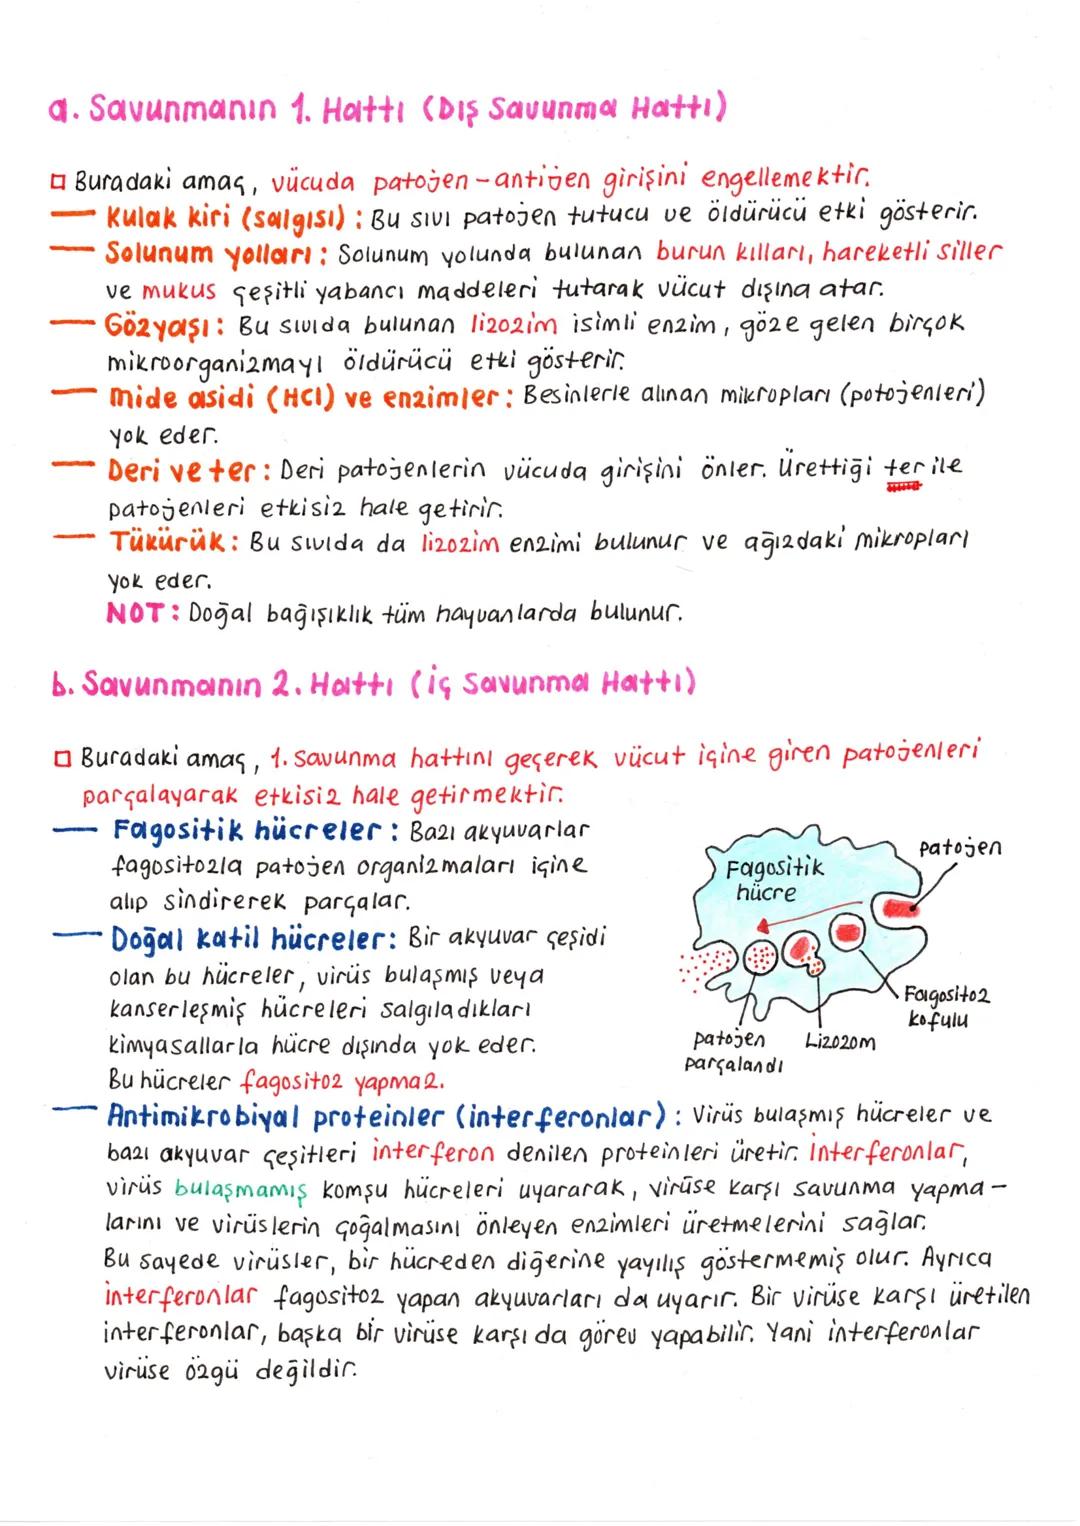 a. Savunmanın 1. Hattı (Dış Savunma Hattı)
Buradaki amaç, vücuda patojen-antijen girişini engellemektir.
Kulak kiri (salgısı): Bu sıvı patojen tutucu ve öldürücü etki gösterir.
Solunum yolları: Solunum yolunda bulunan burun kılları, hareketli siller
ve mukus çeşitli yabancı maddeleri tutarak vücut dışına atar.
Gözyaşı: Bu sıvıda bulunan lizozim isimli enzim, göze gelen birçok
mikroorganizmayı öldürücü etki gösterir.
Mide asidi (HCl) ve enzimler: Besinlerle alınan mikropları (potojenleri)
yok eder.
Deri ve ter: Deri patojenlerin vücuda girişini önler. Ürettiği ter ile
patojenleri etkisiz hale getirir.
Tükürük: Bu sıvıda da lizozim enzimi bulunur ve ağızdaki mikropları
yok eder.
NOT: Doğal bağışıklık tüm hayvanlarda bulunur.
b. Savunmanın 2. Hattı (İç Savunma Hattı)
Buradaki amaç, 1. savunma hattını geçerek vücut içine giren patojenleri
parçalayarak etkisiz hale getirmektir.
Fagositik hücreler: Bazı akyuvarlar
fagositozla patojen organizmaları içine
alıp sindirerek parçalar.
Doğal katil hücreler: Bir akyuvar çeşidi
olan bu hücreler, virüs bulaşmış veya
kanserleşmiş hücreleri salgıladıkları
kimyasallarla hücre dışında yok eder.
Bu hücreler fagositoz yapmaz.
patojen
Fagositik
hücre
Fagositoz
kofulu
Lizozom
patojen
parçalandı
Antimikrobiyal proteinler (interferonlar): Virüs bulaşmış hücreler ve
bazı akyuvar çeşitleri interferon denilen proteinleri üretir. İnterferonlar,
virüs bulaşmamış komşu hücreleri uyararak, virüse karşı savunma yapma-
larını ve virüslerin çoğalmasını önleyen enzimleri üretmelerini sağlar.
Bu sayede virüsler, bir hücreden diğerine yayılış göstermemiş olur. Ayrıca
interferonlar fagositoz yapan akyuvarları da uyarır. Bir virüse karşı üretilen
interferonlar, başka bir virüse karşı da görev yapabilir. Yani interferonlar
virüse özgü değildir.